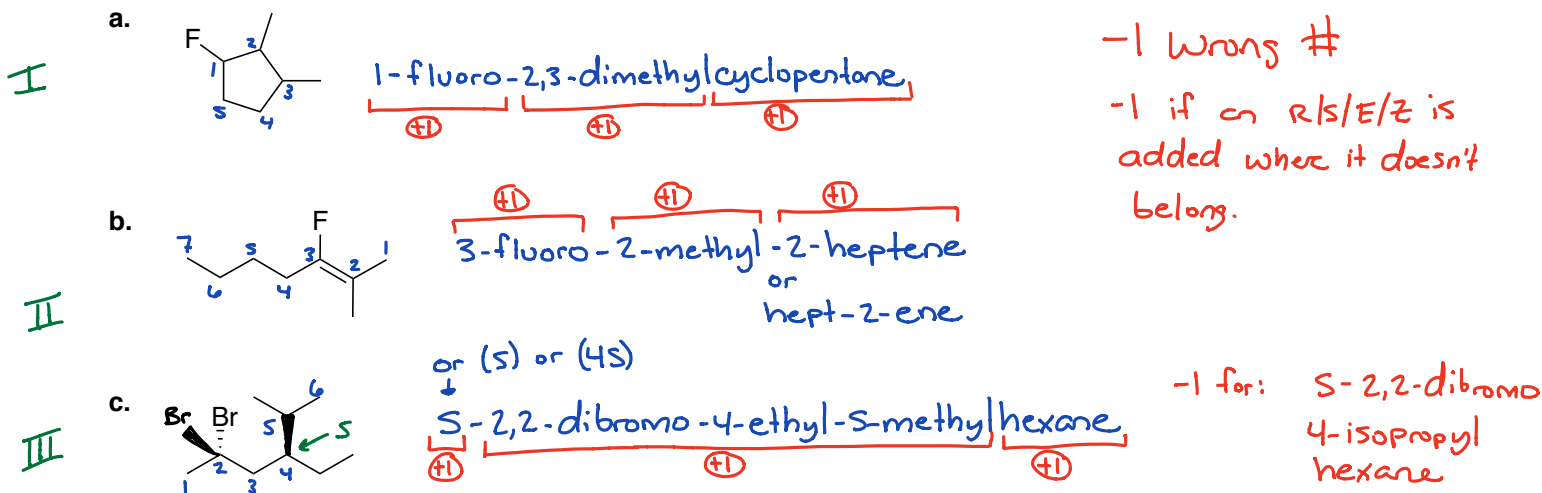 a.
F
1
2
3
4
5
I
1-fluoro-2,3-dimethylcyclopentane
+1
+1
+1
-1 wrong #
-1 if an R/S/E/Z is
added where it doesn't
belong.
b.
F
7
6
5
4
3
2
1
II
+1
+1
+1
3-fluoro-2-methyl-2-heptene
or
hept-2-ene
or (S) or (4S)
c.
Br
Br
6
5
S
1
2
3
4
III
S-2,2-dibromo-4-ethyl-5-methylhexane
+1
+1
+1
-1 for: S-2,2-dibromo
4-isopropyl
hexane